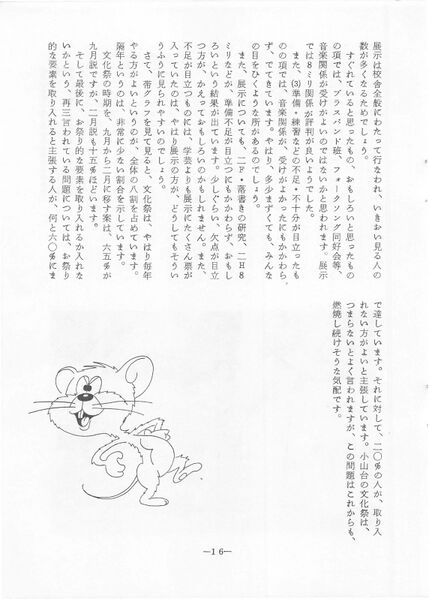 展示は校舎全般にわたって行なわれ、いきおい見る人の
数が多くなるためでしょう。
すぐれていると思ったもの、おもしろいと思ったもの
の項では、ブラスバンド班、フォークソング同好会等、
音楽関係が受けがよいのではないかと思われます。展示
では8ミリ関係が評判が良いようでした。
また、(3)準備・練習などの不足・不十分が目立ったも
のの項では、音楽関係が、受けがよかったにもかかわら
ず、でてきています。やはり、多少まずくても、みんな
の目をひくような所があるのでしょう。
また、展示についても、二F・落書きの研究、二H8
ミリなどが、準備不足が目立つにもかかわらず、おもし
ろいという結果が出ています。少しぐらい、欠点が目立
つ方が、かえっておもしろいのかもしれません。また、
不足が目立つものには、学芸よりも展示にたくさん票が
入っていたのは、やはり展示の方が、どうしてもそうい
うふうに見られやすいのでしょう。
さて、帯グラフを見て見ると、文化祭は、やはり毎年
やる方がよいというのが、全体の八割を占めています。
隔年というのは、非常に少ない割合を示しています。
文化祭の時期を、九月から二月に移す案は、六五％が
九月説ですが、二月説も十五％ほどいます。
そして最後に、お祭り的な要素を取り入れるか入れな
いかという、再三言われている問題については、お祭り
的な要素を取り入れると主張する人が、何と六〇％にま
で達しています。それに対して、二〇％の人が、取り入
れない方がよいと主張しています。小山台の文化祭は、
つまらないとよく言われますが、この問題はこれからも、
燃焼し続けそうな気配です。
―16―